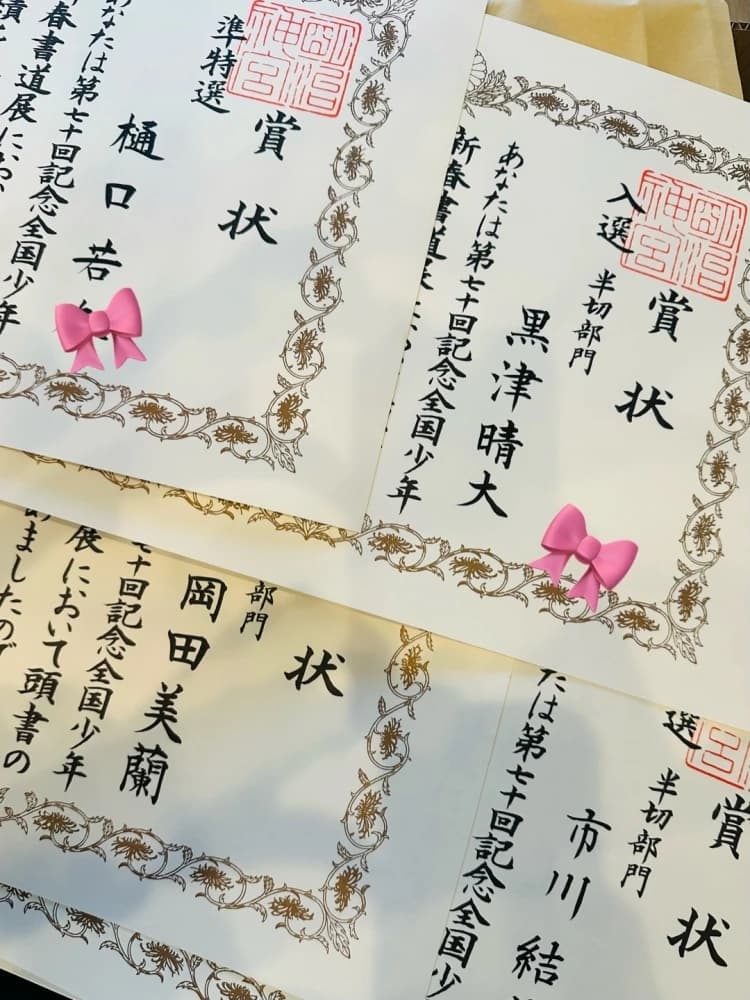 準特選
賞状
樋口若
あなたは第七十回記念全国少年
新春書道展にお
績
入選
半切部門
賞状
黒津晴大
あなたは第七十回記念全国少年
新春書道展
明治神宮
明治神宮
部門
状
岡田美蘭
七十回記念全国少年
展において頭書の
めましたので
選
半切部門
賞状
市川結
たは第七十回記念全国少